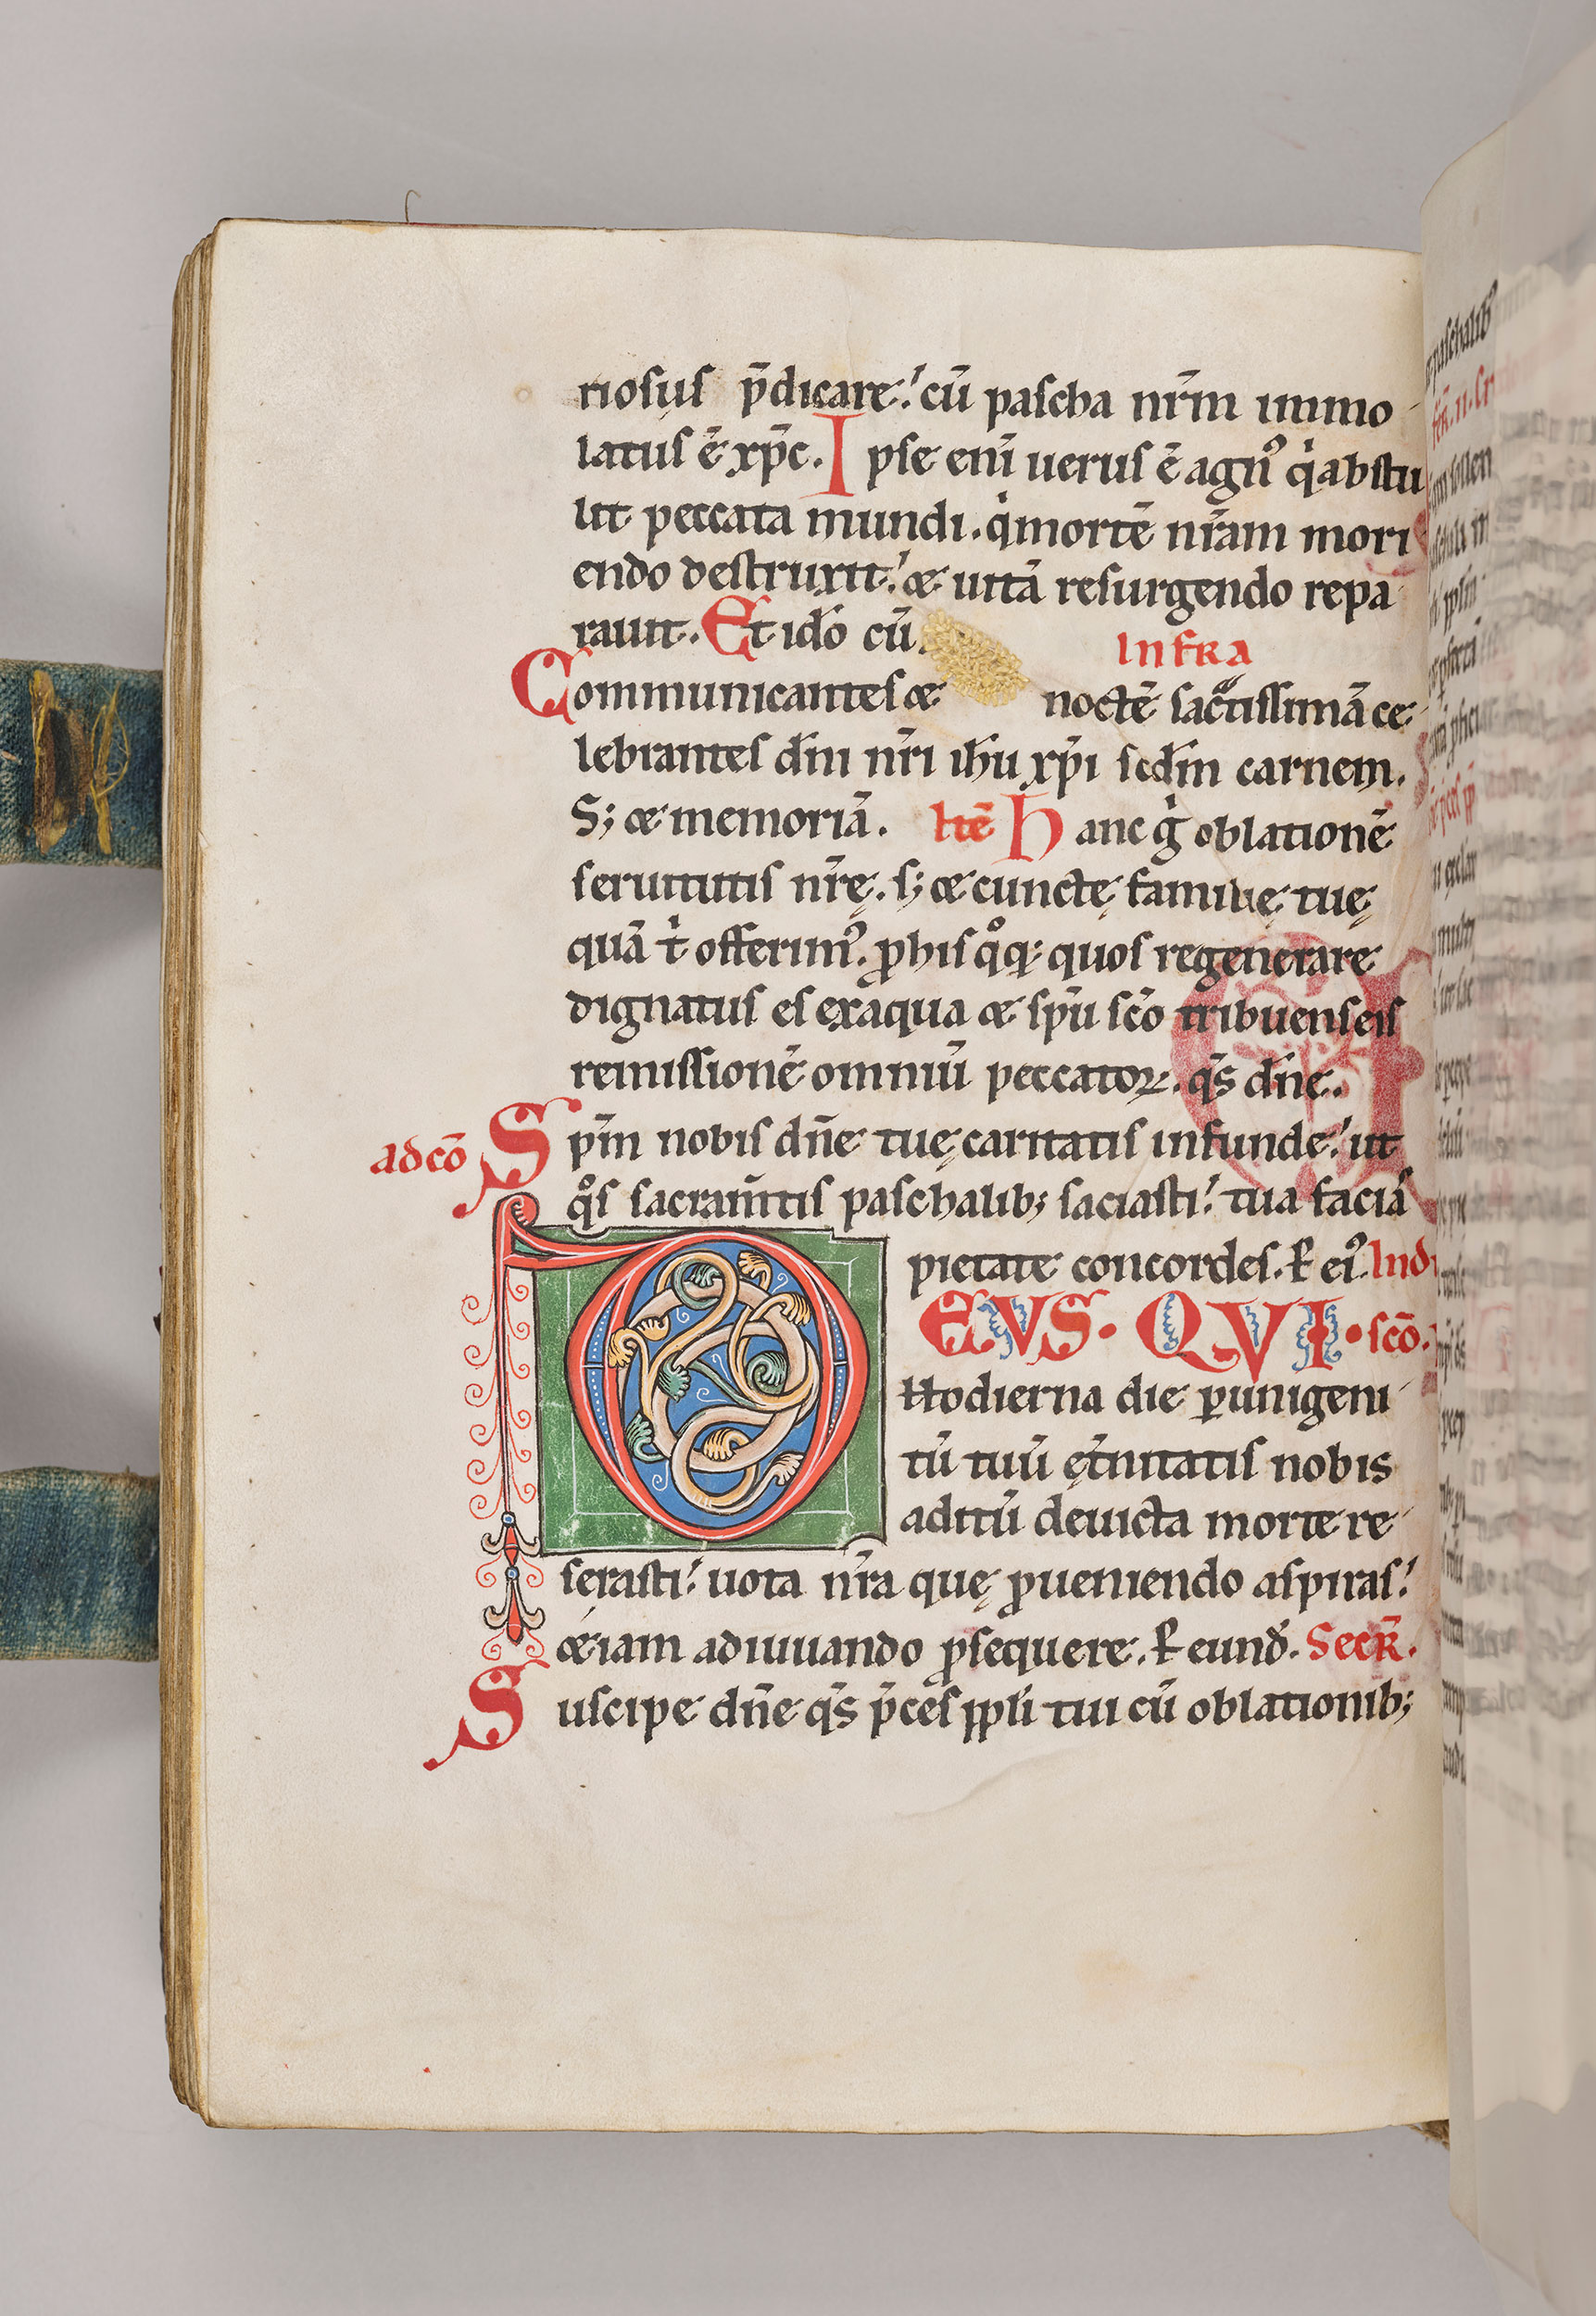 riosus p̄dicare. cū pascha nr̄m immo
latus ē xp̄c. Ipse enī uerus ē agnꝰ qͥ abstu
lit peccata mundi. qͥ mortē nr̄am mori
endo destruxit. & uitā resurgendo repa
rauit. Et idō cū.
Infra
Communicantes & noctē sac̄tissimā ce
lebrantes dn̄i nr̄i ih̄u xp̄i scdm̄ carnem.
S; & memoriā. Itē Hanc gͥ oblationē
seruitutis nr̄ę. s; & cunctę familię tuę
quā tͥ offerimꝰ. ꝓ his qͦq; quos regenerare
dignatus es ex aqua & sp̄u sc̄o tribuens eis
remissionē omniū peccatoꝝ. qs̄ dn̄e.
ad cō Sp̄m nobis dn̄e tuę caritatis infunde. ut
qͦs sacram̄tis paschalib; saciasti. tua faciā
pietate concordes. ꝑ eiꝰ. In d̄
DEUS. QVI. sc̄o.
Hodierna die ꝑ unigeni
tū tuū ęt̄nitatis nobis
aditū deuicta morte re
serasti. uota nr̄a quę ꝓueniendo aspiras.
& iam adiuuando ꝓsequere. ꝑ eund̄. Secr̄.
Suscipe dn̄e qs̄ p̄ces ppl̄i tui cū oblationib;